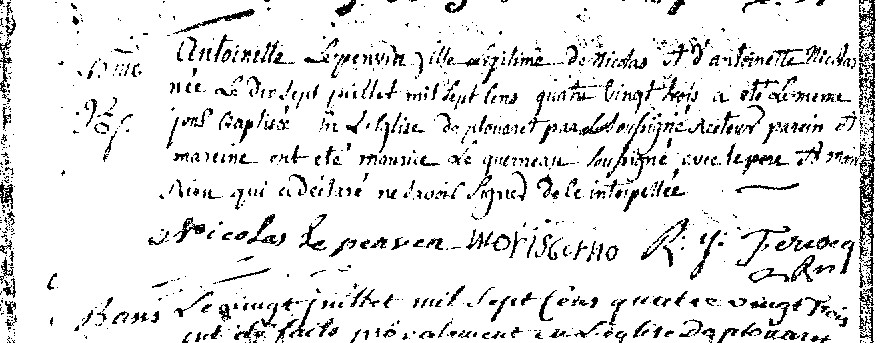 Antoinette Le penven fille legitime de Nicolas et d'antoinette Nicolas
née Le dix sept juillet mil sept Cens quatre vingt trois a eté Le meme
jour Baptisée En L'eglise de plouaret par Le Soussigné Recteur parein et
mareine ont eté maurice Le quemeau Soussigné avec le pere et
qui a déclaré ne savoir Signer de ce interpellée
Nicolas Le penven
Bans Le vingt juillet mil Sept Cens quatre vingt trois
ont été faits pronalement en L'eglise De plouaret